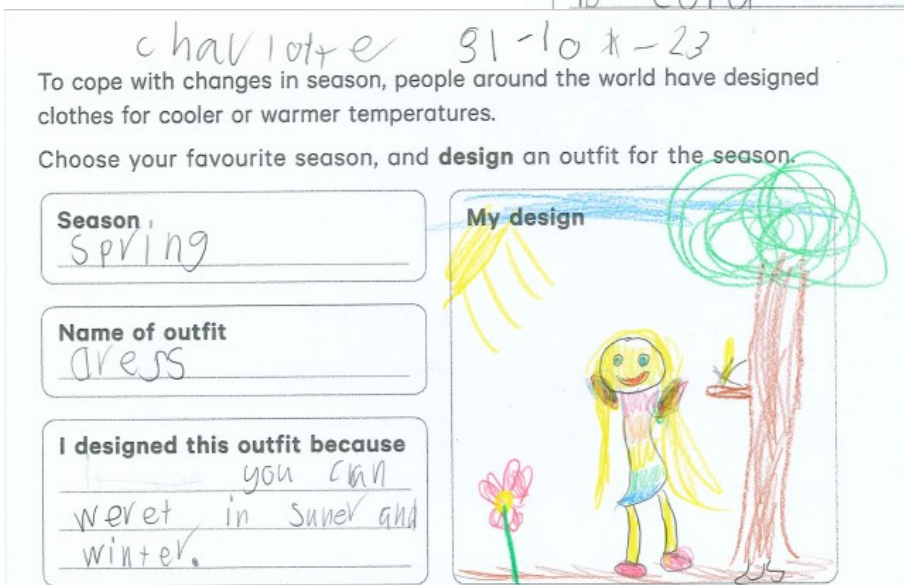 charlotte 31-10-23
To cope with changes in season, people around the world have designed
clothes for cooler or warmer temperatures.
Choose your favourite season, and design an outfit for the season.
Season
spring
Name of outfit
dress
I designed this outfit because
you can
weret in suner and
winter.
My design